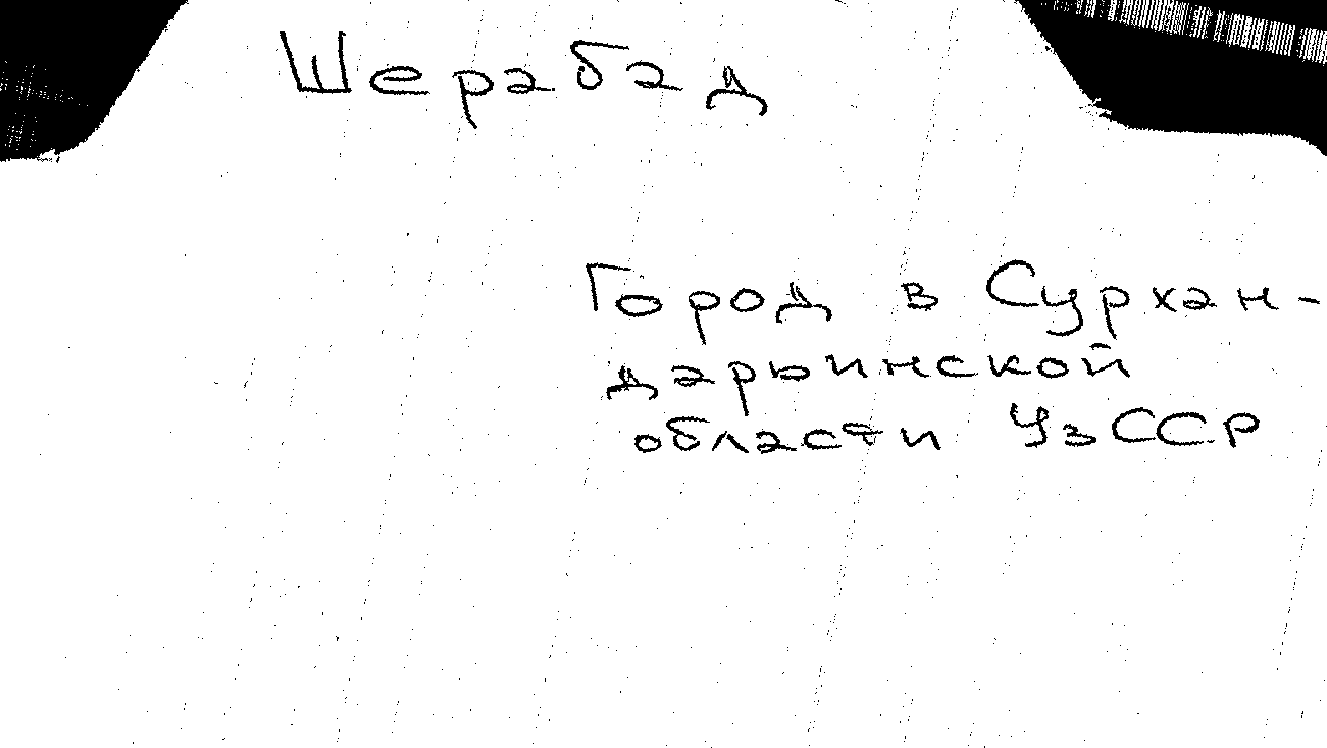 Шерабад
Город в Сурхан-
дарьинской
области УзССР